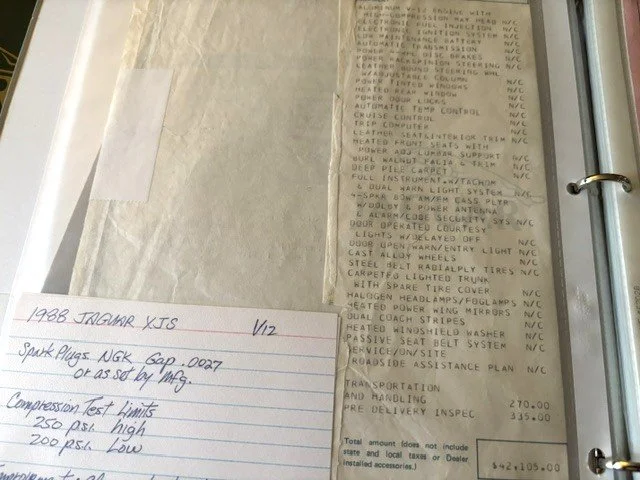 ALUMINUM V-12 ENGINE WITH
HIGH-COMPRESSION MAY HEAD N/C
ELECTRONIC FUEL INJECTION N/C
ELECTRONIC IGNITION SYSTEM N/C
LOW MAINTENANCE BATTERY N/C
AUTOMATIC TRANSMISSION N/C
POWER 4-WHL DISC BRAKES N/C
POWER RACK&PINION STEERING N/C
LEATHER BOUND STEERING WHL
W/ADJUSTABLE COLUMN N/C
POWER TINTED WINDOWS N/C
HEATED REAR WINDOW N/C
POWER DOOR LOCKS N/C
AUTOMATIC TEMP CONTROL N/C
CRUISE CONTROL N/C
TRIP COMPUTER N/C
LEATHER SEAT&INTERIOR TRIM N/C
HEATED FRONT SEATS WITH
POWER ADJ LUMBAR SUPPORT N/C
BURL WALNUT FACIA & TRIM N/C
DEEP PILE CARPET N/C
FULL INSTRUMENT.W/TACHOM
& DUAL WARN LIGHT SYSTEM N/C
4-SPKR 80W AM/FM CASS PLYR
W/DOLBY & POWER ANTENNA N/C
& ALARM/CODE SECURITY SYS N/C
DOOR OPERATED COURTESY
LIGHTS W/DELAYED OFF N/C
DOOR OPEN WARN/ENTRY LIGHT N/C
CAST ALLOY WHEELS N/C
STEEL BELT RADIALPLY TIRES N/C
CARPETED LIGHTED TRUNK
WITH SPARE TIRE COVER N/C
HALOGEN HEADLAMPS/FOGLAMPS N/C
HEATED POWER WING MIRRORS N/C
DUAL COACH STRIPES N/C
HEATED WINDSHIELD WASHER N/C
PASSIVE SEAT BELT SYSTEM N/C
SERVICE/ON/SITE
ROADSIDE ASSISTANCE PLAN N/C
TRANSPORTATION
AND HANDLING 270.00
PRE DELIVERY INSPEC 335.00
Total amount (does not include
state and local taxes or Dealer
installed accessories.)
$42,105.00
1988 JAGUAR XJS V12
Spark Plugs NGK Gap .0027
or as set by mfg.
Compression Test Limits
250 p.s.i. high
200 p.s.i. Low